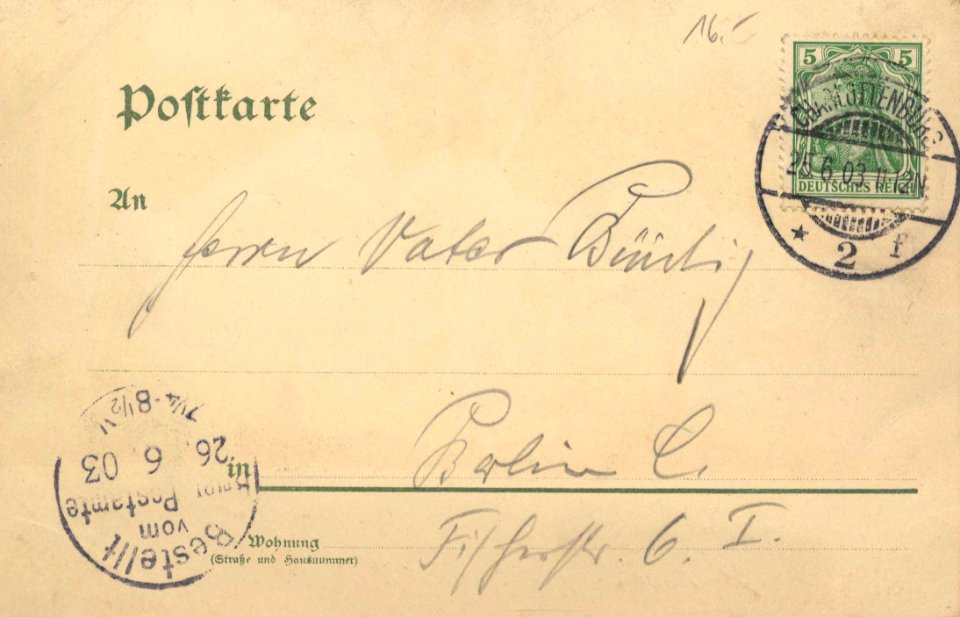 16.-
5 5
CHARLOTTENBURG
25.6.03 11-12V
DEUTSCHES REICH
* 2 f
Postkarte
An
Herrn Vater
in Berlin C.
Wohnung
(Straße und Hausnummer)
Fischerstr. 6. I.
Bestellt
vom
Postamte
26 6 03
7¼-8½ V